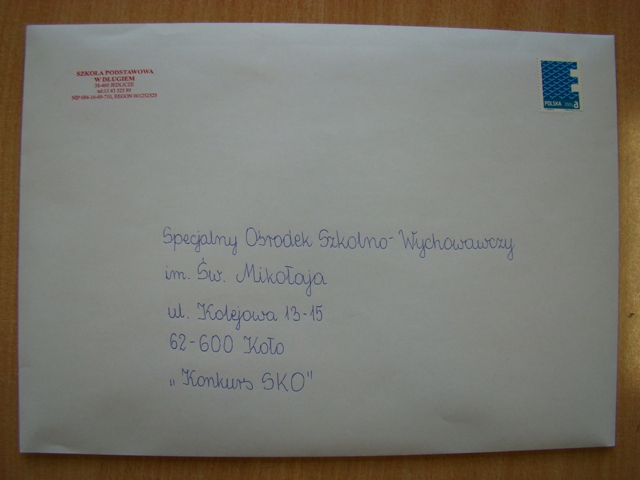 SZKOŁA PODSTAWOWA
W DŁUGIEM
38-460 JEDLICZE
POLSKA
Specjalny Ośrodek Szkolno-Wychowawczy
im. Św. Mikołaja
ul. Kolejowa 13-15
62-600 Koło
„Konkurs SKO"